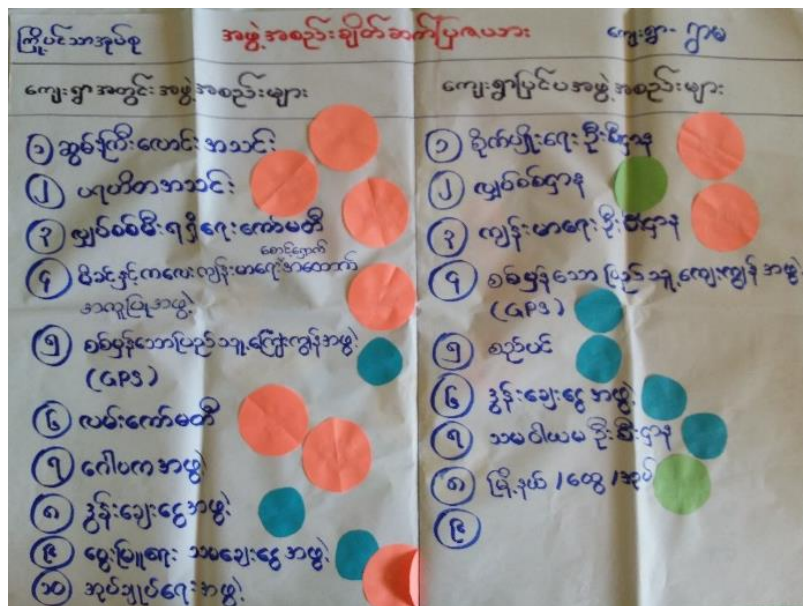 ကြို့ပင်သာအုပ်စု
အဖွဲ့အစည်းချိတ်ဆက်ပြဇယား
ကျေးရွာ- ရွာမ
ကျေးရွာအတွင်းအဖွဲ့အစည်းများ
၁ ဆွမ်းကြီးလောင်းအသင်း
၂ ပရဟိတအသင်း
၃ လျှပ်စစ်မီးရရှိရေးကော်မတီ
၄ မိခင်နှင့်ကလေးကျန်းမာရေးစောင့်ရှောက်
အထောက်
အကူပြုအဖွဲ့
၅ စစ်မှန်သောပြည်သူ့ကြေးကျွန်အဖွဲ့
(GPS)
၆ လမ်းကော်မတီ
၇ ဂေါပကအဖွဲ့
၈ ဒွန်းချေးငွေအဖွဲ့
၉ မွေးမြူရေး သမချေးငွေအဖွဲ့
၁၀ အုပ်ချုပ်ရေးအဖွဲ့
ကျေးရွာပြင်ပအဖွဲ့အစည်းများ
၁ စိုက်ပျိုးရေးဦးစီးဌာန
၂ လျှပ်စစ်ဌာန
၃ ကျန်းမာရေးဦးစီးဌာန
၄ စစ်မှန်သော ပြည်သူ့ကျေးကျွန်အဖွဲ့
(GPS)
၅ စည်ပင်
၆ ဒွန်းချေးငွေအဖွဲ့
၇ သမဝါယမဦးစီးဌာန
၈ မြို့နယ်/ထွေ/အုပ်
၉